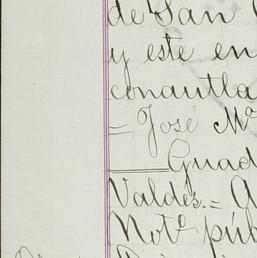 de San
y este en
conautla
= José Mª
Guad
Valdés.= A
Notº púb